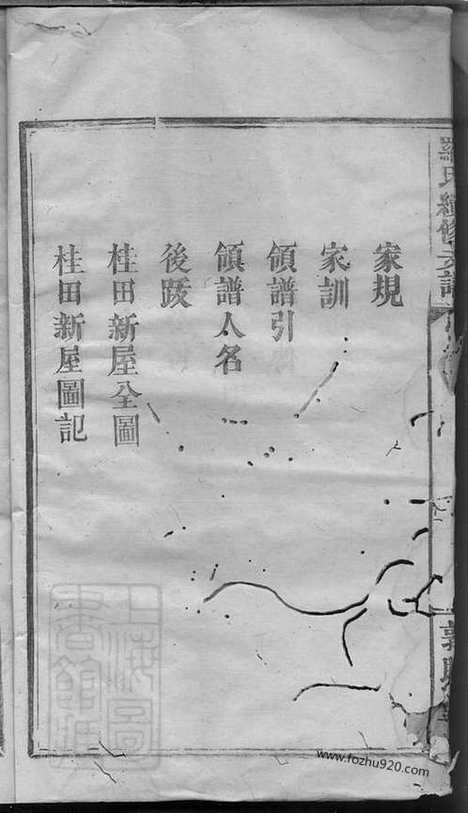 家規
家訓
領譜引
領譜人名
後跋
桂田新屋全圖
桂田新屋圖記
羅氏續修支譜
敦
www.fozhu920.com